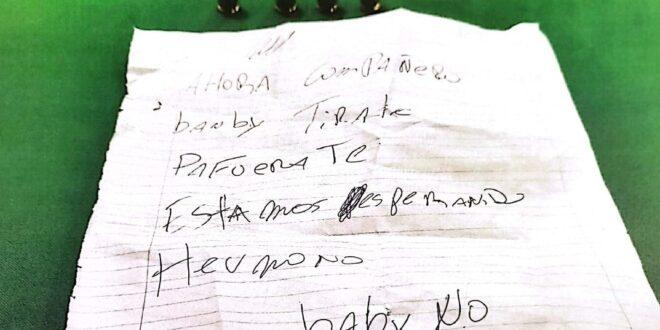 AHORA COMPAÑERO
banby TiRAte
PAFUERA TE
ESTAMOS esperANDO
Hermono
baby N.O